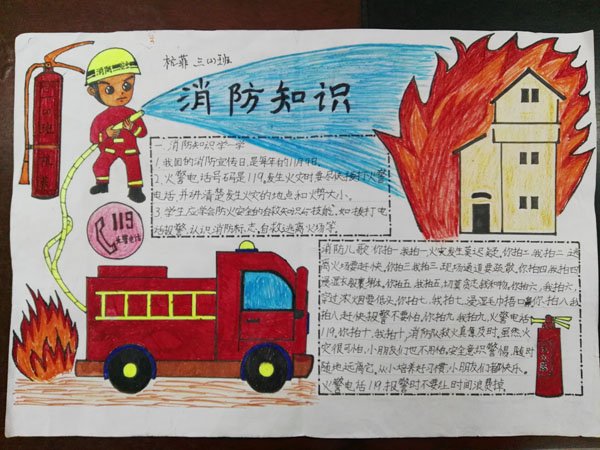 三(1)班
消防知识
一、消防知识学一学
1、我国的消防宣传日,是每年的11月9日。
2、火警电话号码是119,发生火灾时要尽快拨打火警
电话,并讲清楚发生火灾的地点和火势大小。
3、学生应学会防火安全的自救知识与技能,如:拨打电
话报警,认识消防标志,自救逃离火场等。
119
火警电话
消防儿歌 你拍一,我拍一,火灾发生莫迟疑,你拍二,我拍二,逃
离火场要赶快,你拍三,我拍三,现场通道要疏散,你拍四,我拍四,
你拍五,我拍五,切莫贪恋救财物,你拍六,我拍六,
浓烟要低头,你拍七,我拍七,湿毛巾捂口鼻,你拍八,我
拍八,赶快报警不要怕,你拍九,我拍九,火警电话
119,你拍十,我拍十,消防队救火真是及时,虽然火
灾很可怕,小朋友们也不用怕,安全意识警惕,随时
随地远离它,从小培养好习惯,小朋友们都快乐。
火警电话119,报警时不要让时间浪费掉。
消防